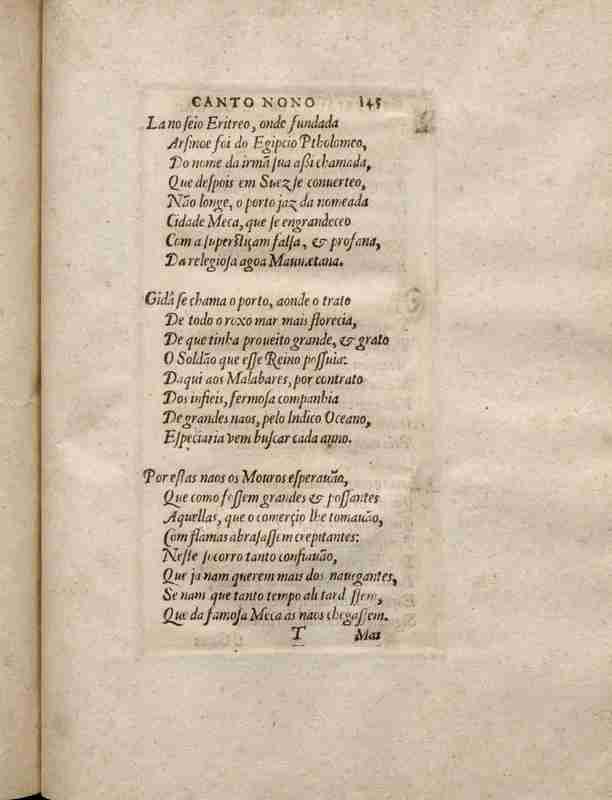 CANTO NONO 145
La no ſeio Eritreo, onde fundada
Arſinoe foi do Egipcio Ptholomeo,
Do nome da irmã ſua aßi chamada,
Que deſpois em Suez ſe conuerteo,
Não longe, o porto jaz da nomeada
Cidade Meca, que ſe engrandeceo
Com a ſuperſtiçam falſa, & profana,
Da relegioſa agoa Maumetana.
Gidâ ſe chama o porto, aonde o trato
De todo o roxo mar mais florecia,
De que tinha proueito grande, & grato
O Soldão que eſſe Reino poſſuia:
Daqui aos Malabares, por contrato
Dos infieis, fermoſa companhia
De grandes naos, pelo Indico Oceano,
Eſpeciaria vem buſcar cada anno.
Por eſtas naos os Mouros eſperauão,
Que como foſſem grandes & poſſantes
Aquellas, que o comerçio lhe tomauão,
Com flamas abraſaſſem crepitantes:
Neſte ſocorro tanto confiauão,
Que ja nam querem mais dos nauegantes,
Se nam que tanto tempo ali tard ſſem,
Que da famoſa Meca as naos chegaſſem.
T Mas